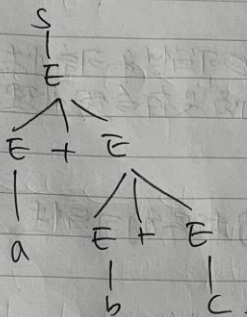 S
E
E + E
a
E + E
b
c